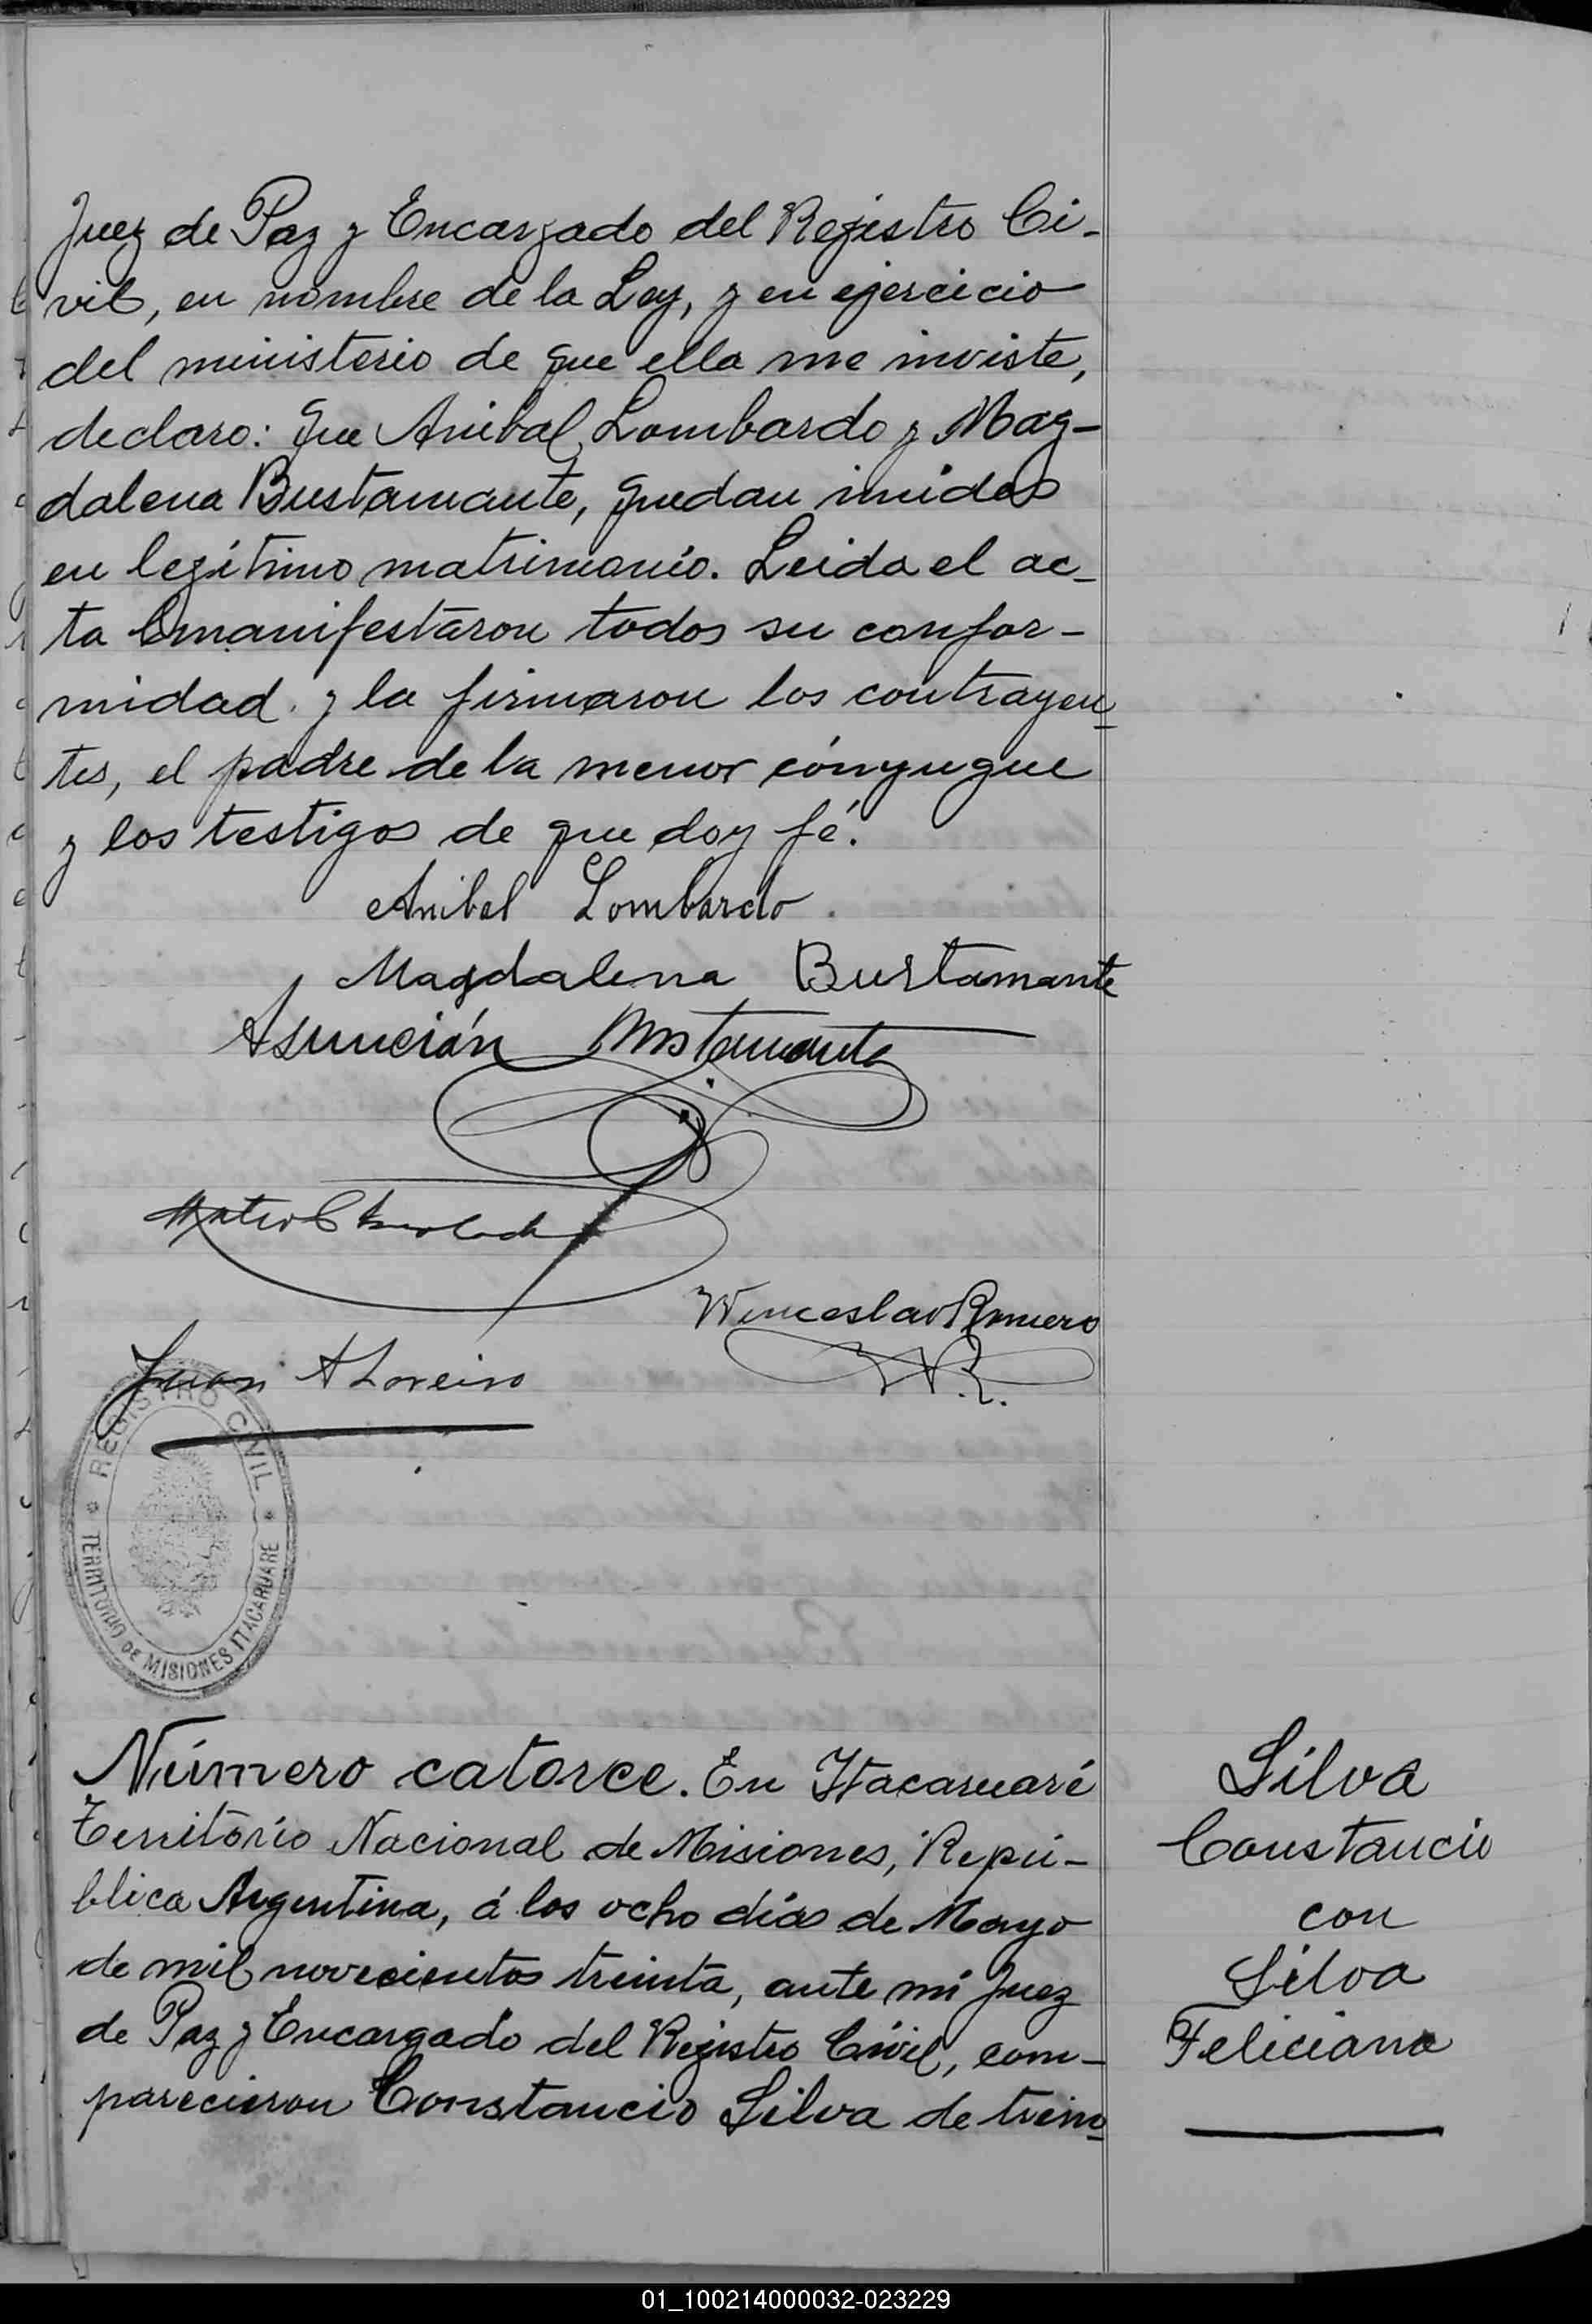 Juez de Paz y Encargado del Registro Ci-
vil, en nombre de la Ley, y en ejercicio
del ministerio de que ella me inviste,
declaro: Que Anibal Lombardo y Mag-
dalena Bustamante, quedan unidos
en legítimo matrimonio. Leida el ac-
ta manifestaron todos su confor-
midad y la firmaron los contrayen-
tes, el padre de la menor cónyugue
y los testigos de que doy fé.
Anibal Lombardo
Magdalena Bustamante
Asunción Bustamante
Mateo
Wenceslao Romero
W.R.
Juan A Loreiro
REGISTRO CIVIL
TERRITORIO DE MISIONES ITACARUARE
Número catorce. En Itacaruaré
Territorio Nacional de Misiones, Repú-
blica Argentina, á los ocho días de Mayo
de mil novecientos treinta, ante mi Juez
de Paz y Encargado del Registro Civil, com-
parecieron Constancio Silva de trein-
Silva
Constancio
con
Silva
Feliciana
01_100214000032-023229